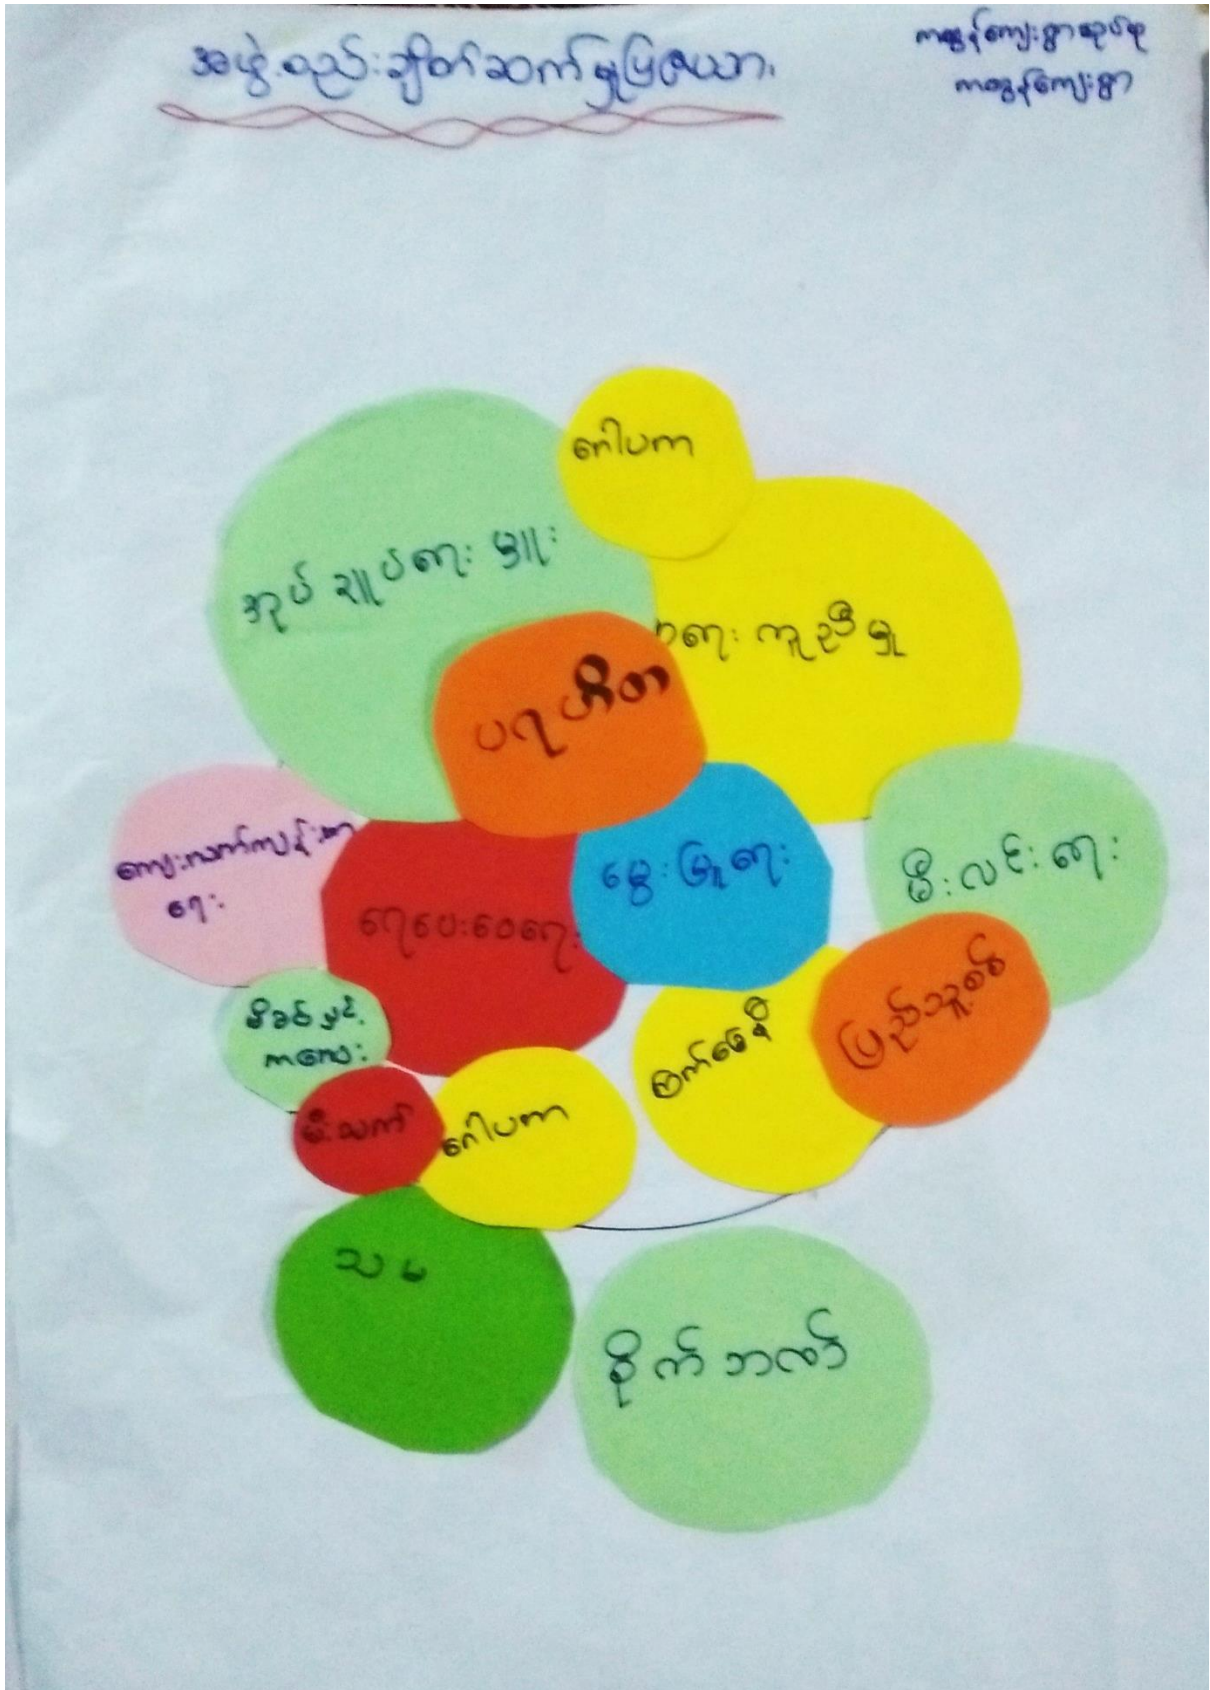 အဖွဲ့စည်းချိတ်ဆက်မှုပြဇယား
ကထွန်ကျေးရွာအုပ်စု
ကထွန်ကျေးရွာ
ဂေါပကာ
အုပ်ချုပ်ရေးမှူး
ရေးကူညီမှု
ပရဟိတ
ကျေးလက်ကျန်းမာ
ရေး
ရေပေးဝေရေး
မွေးမြူရေး
မီးလင်းရေး
မိခင်နှင့်
ကလေး
ကြက်ခြေနီ
ပြည်သူ့စစ်
မီးသတ်
ဂေါပကာ
သမ
စိုက်ဘဏ်